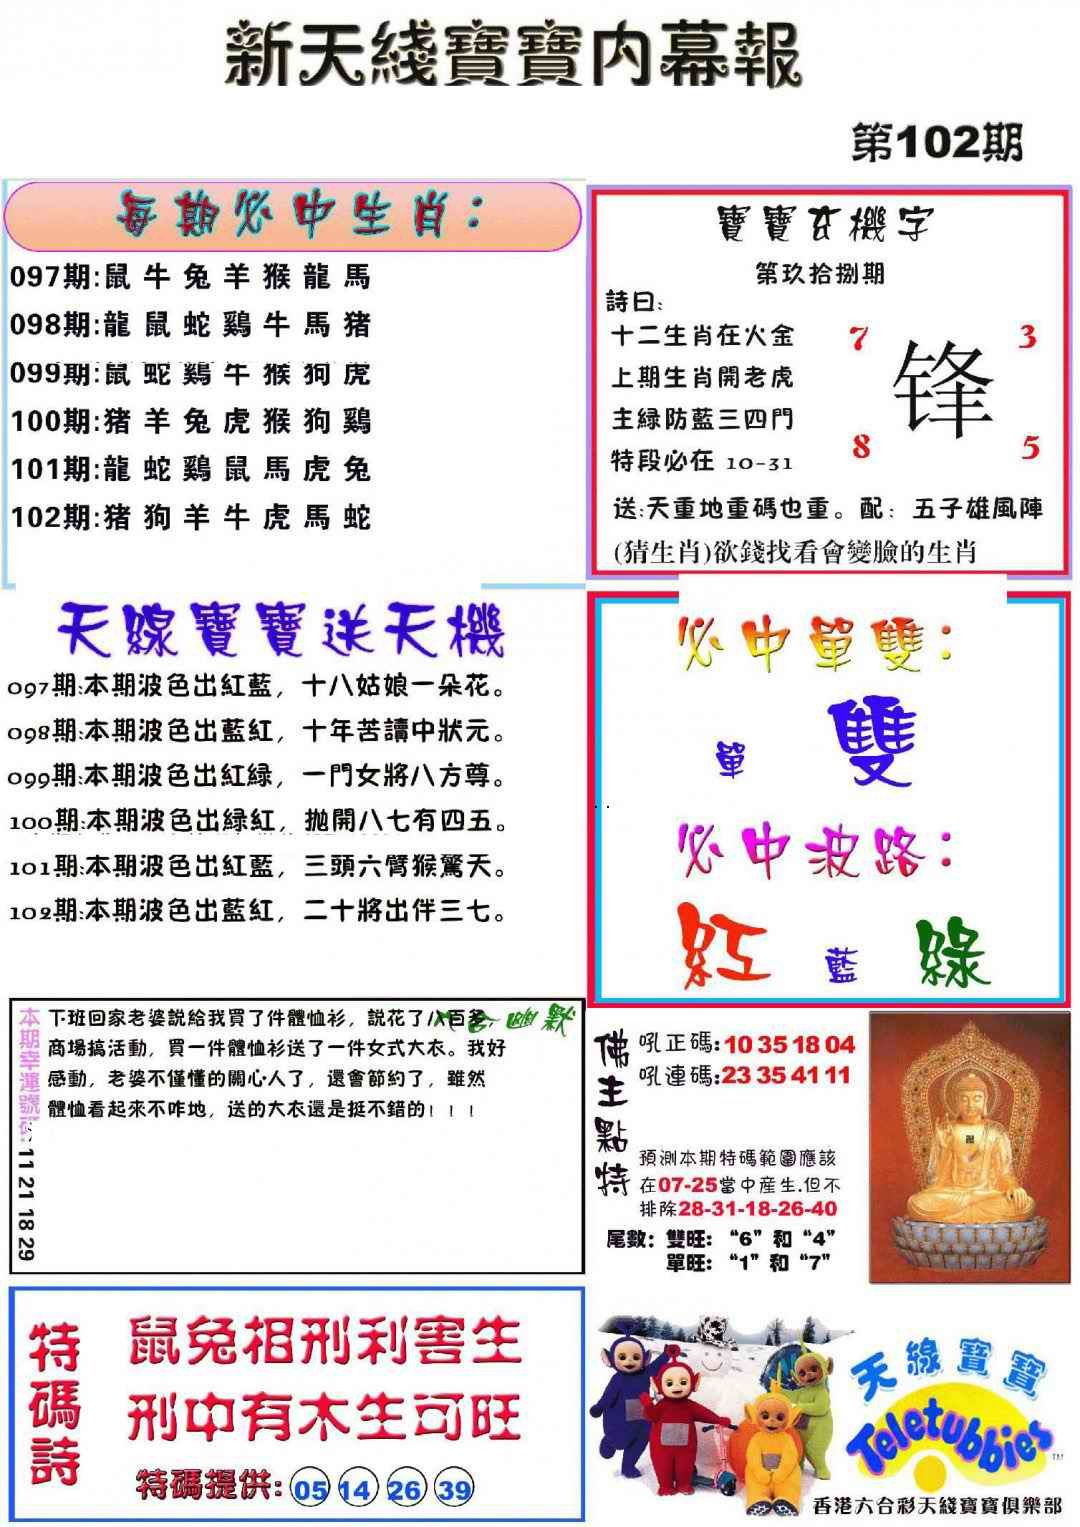 新天綫寶寶内幕報
第102期
每期必中生肖:
097期:鼠牛兔羊猴龍馬
098期:龍鼠蛇鷄牛馬猪
099期:鼠蛇鷄牛猴狗虎
100期:猪羊兔虎猴狗鷄
101期:龍蛇鷄鼠馬虎兔
102期:猪狗羊牛虎馬蛇
寶寶玄機字
第玖拾捌期
詩曰:
十二生肖在火金
上期生肖開老虎
主緑防藍三四門
特段必在 10-31
7 3
锋
8 5
送:天重地重碼也重。配：五子雄風陣
(猜生肖)欲錢找看會變臉的生肖
天線寶寶送天機
097期:本期波色出紅藍，十八姑娘一朵花。
098期:本期波色出藍紅，十年苦讀中狀元。
099期:本期波色出紅緑，一門女將八方尊。
100期:本期波色出緑紅，拋開八七有四五。
101期:本期波色出紅藍，三頭六臂猴驚天。
102期:本期波色出藍紅，二十將出伴三七。
必中單雙:
單 雙
必中波路:
紅 藍 綠
本期幸運號碼:
11 21 18 29
幽默
下班回家老婆説給我買了件體恤衫，説花了八百多，
商場搞活動，買一件體恤衫送了一件女式大衣。我好
感動，老婆不僅懂的關心人了，還會節約了，雖然
體恤看起來不咋地，送的大衣還是挺不錯的！！！
佛主點特
吼正碼:10 35 18 04
吼連碼:23 35 41 11
預測本期特碼範圍應該
在07-25當中産生.但不
排除28-31-18-26-40
尾數：雙旺：“6”和“4”
單旺：“1”和“7”
特碼詩
鼠兔相刑利害生
刑中有木生可旺
特碼提供: 05 14 26 39
天線寶寶
Teletubbies
TM
香港六合彩天綫寶寶俱樂部